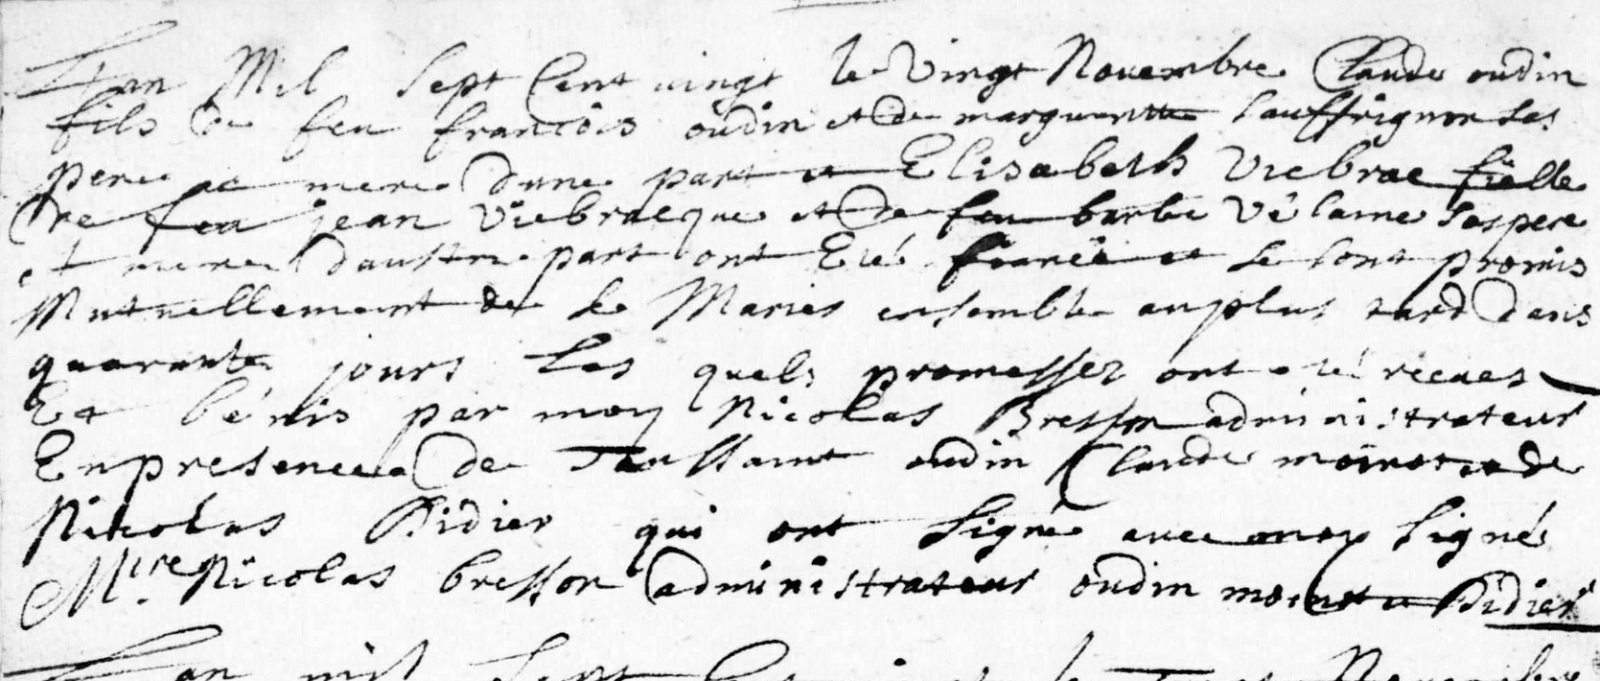 Lan Mil sept Cent vingt le Vingt Novembre Claude oudin
fils de feu francois oudin et de margueritte Sauffrignon ses
pere et mere dune part et Elisabeth Viebrae fielle
de feu jean Viebraeque et de feu barbe Vélaine sespere
et mere daustre part ont Eté fiancéé et se sont promis
Mutuellement de se Marier ensemble auplus tard dans
quarante jours Les quels promessez ont été receues
Et bénis par moy Nicolas Bresson administrateur
Enpresencee de Toussaint oudin Claude moinot et de
Nicolas Didier qui ont signe avec moy signés
Mtre Nicolas bresson administrateur oudin moinot et Didier
Lan mil sept Novembre